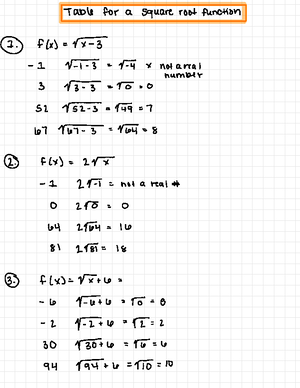 Table for a square root function
1. f(x) = √x-3
-1 √-1-3 = √-4 x not a real
number
3 √3-3 = √0 = 0
52 √52-3 = √49 = 7
67 √67-3 = √64 = 8
2. f(x) = 2√x
-1 2√-1 = not a real #
0 2√0 = 0
64 2√64 = 16
81 2√81 = 18
3. f(x) = √x+6 =
-6 √-6+6 = √0 = 0
-2 √-2+6 = √2 = 2
30 √30+6 = √6 = 6
94 √94+6 = √10 = 10